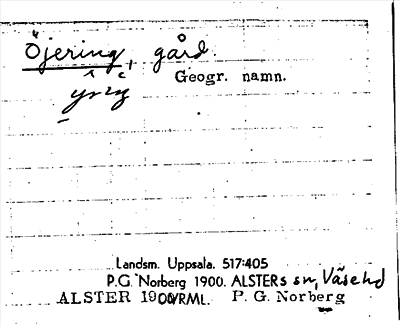 Öjering, gård.
Geogr. namn.
Landsm. Uppsala. 517:405
P.G. Norberg 1900. ALSTERs sn, Väse hd
ALSTER 1900 VRML. P. G. Norberg